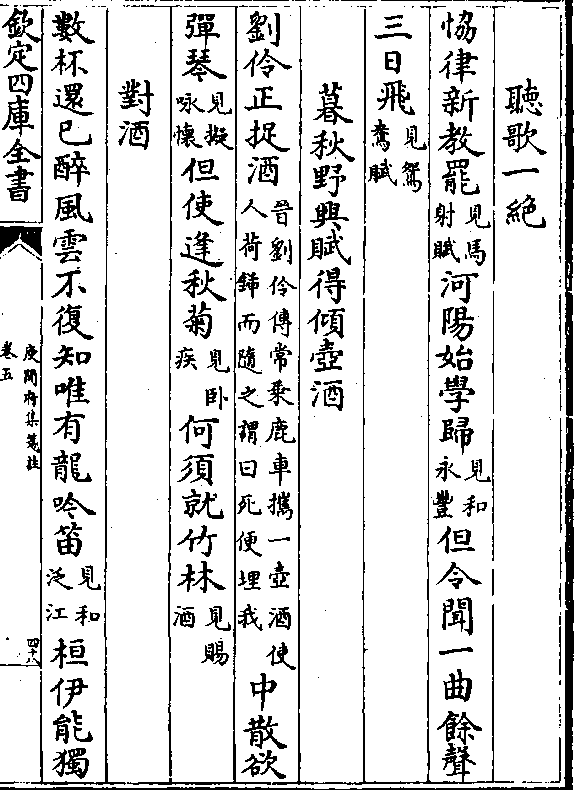 聽歌一絶
協律新教罷見馬射賦河陽始學歸見和永豐但令聞一曲餘聲
三日飛見鴛鴦賦
暮秋野興賦得傾壺酒
劉伶正捉酒晉劉伶傳常乘鹿車攜一壺酒使人荷鍤而隨之謂曰死便埋我中散欲
彈琴見擬咏懷但使逢秋菊見卧疾何須就竹林見賜酒
對酒
數杯還已醉風雲不復知唯有龍吟笛見和泛江桓伊能獨
欽定四庫全書
庾開府集箋註
卷五
四十八